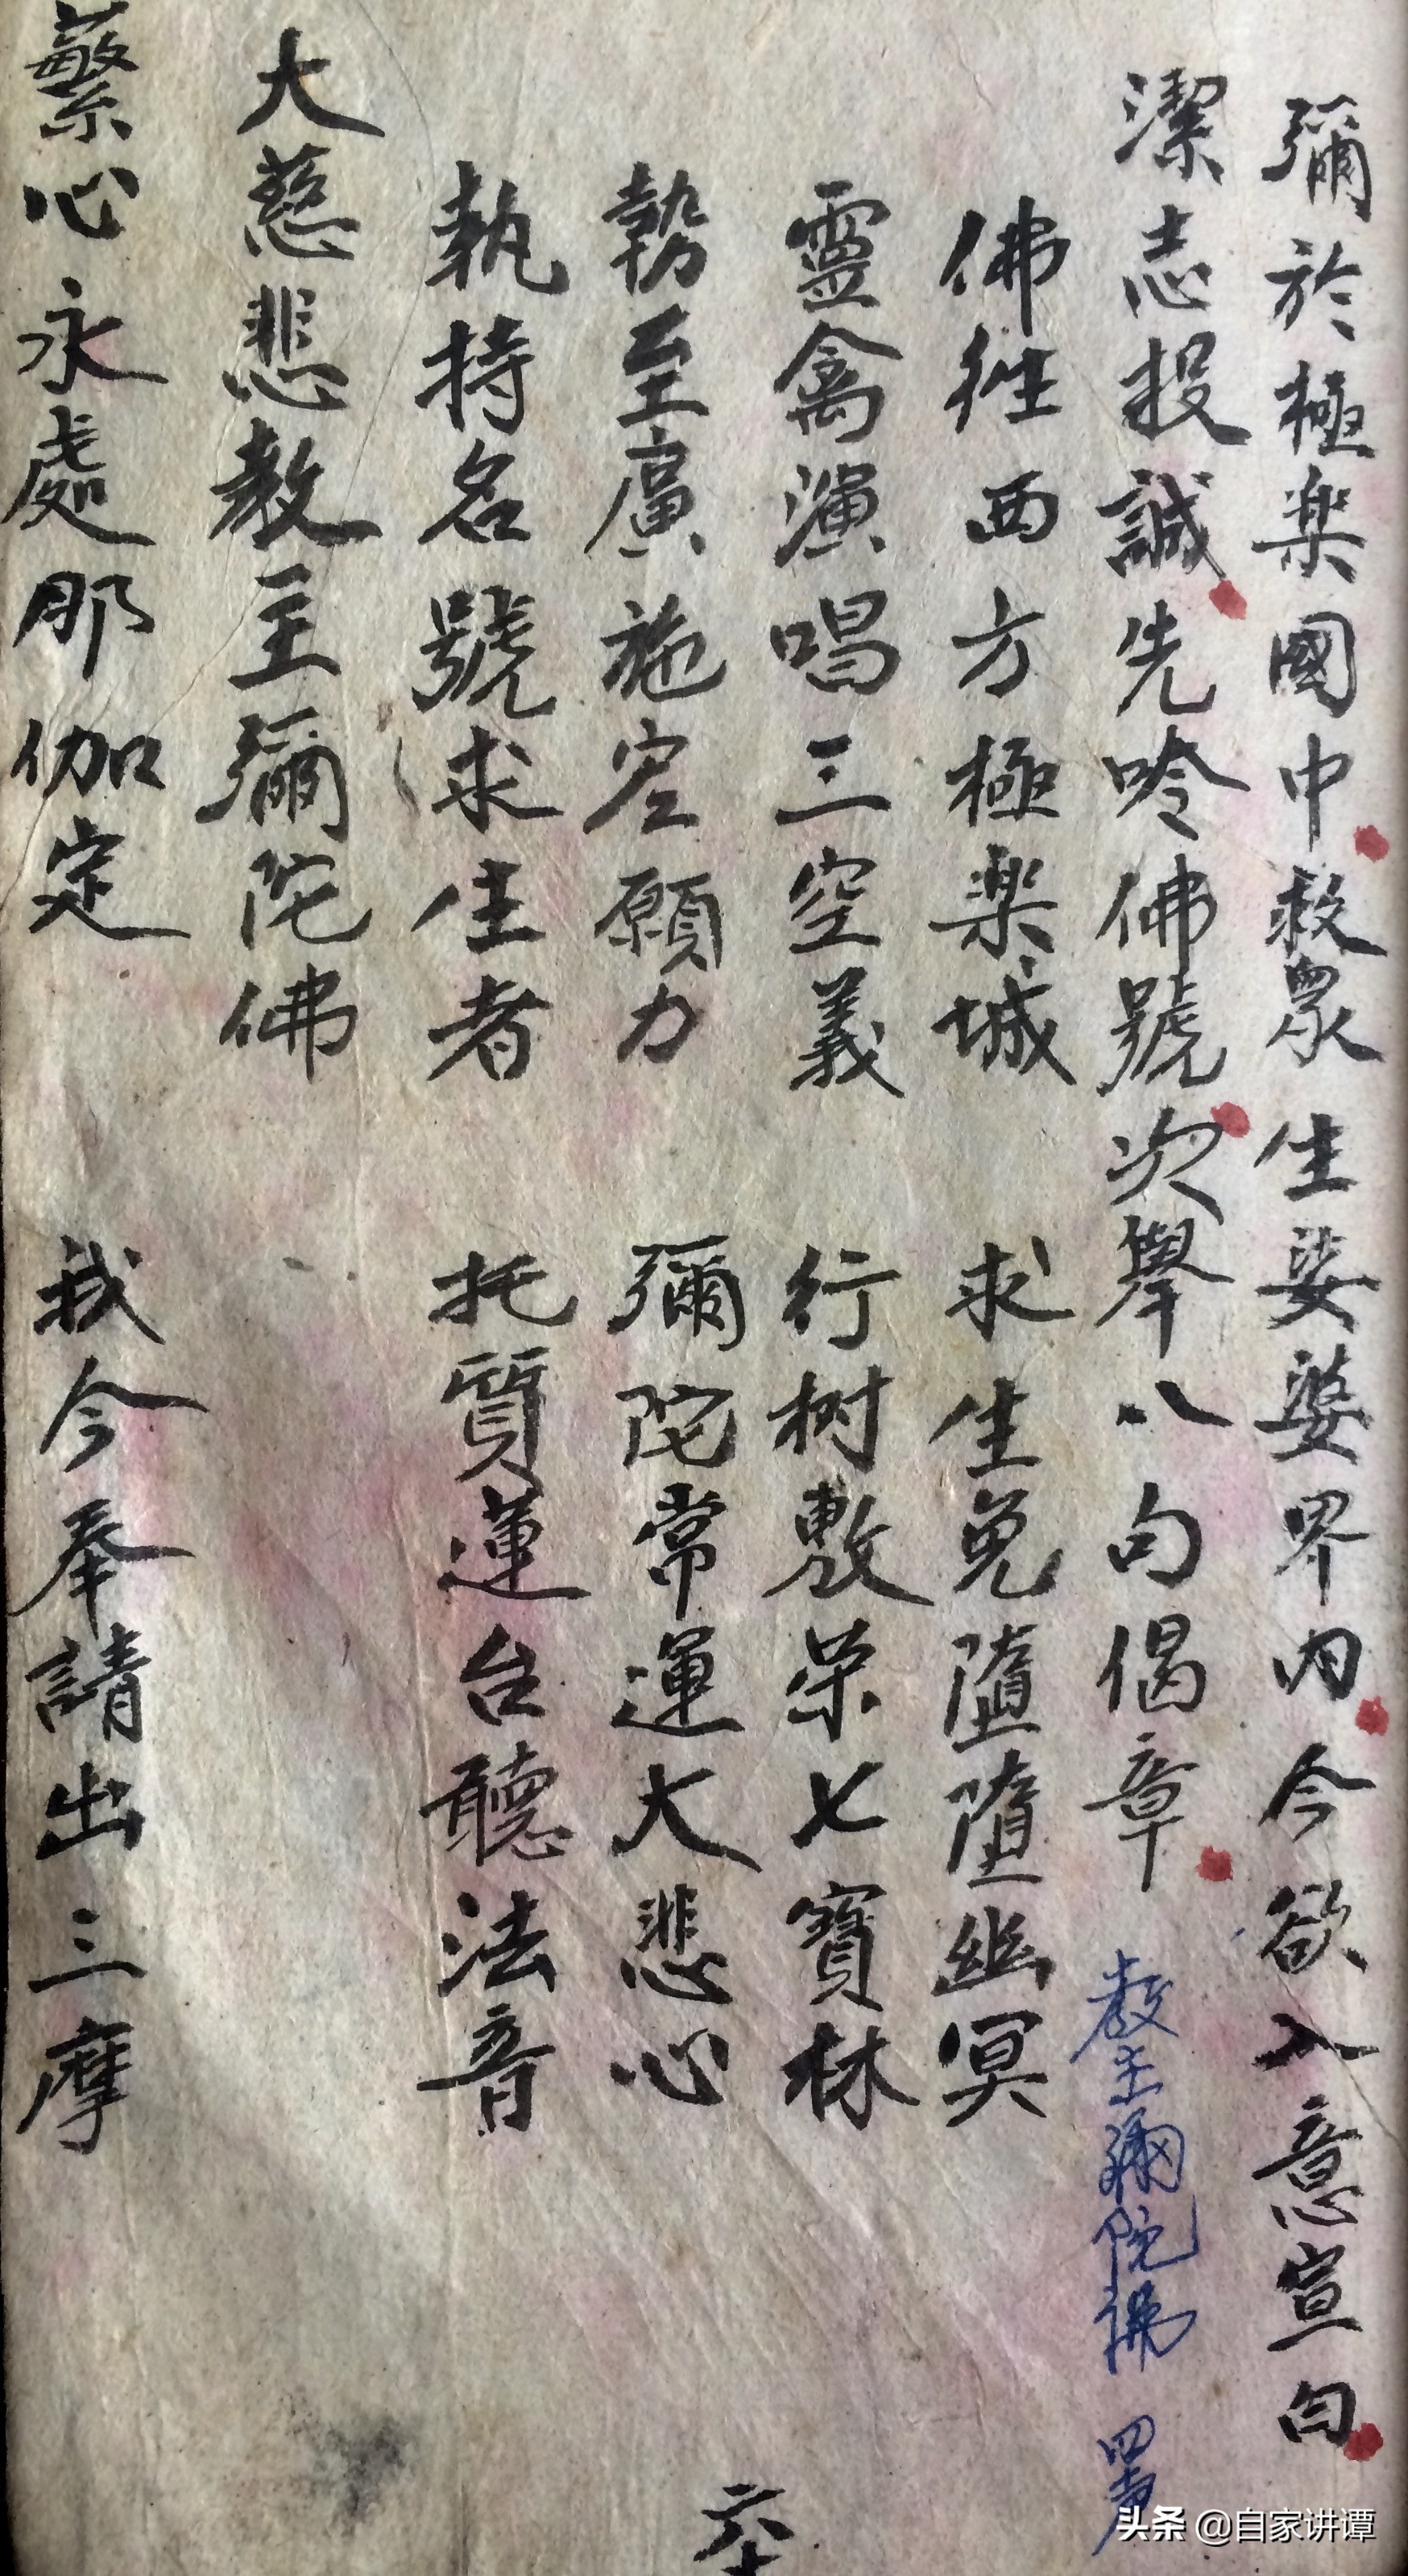 彌於極楽國中救眾生娑婆界内今欲入意宣白
潔志投誠先唫佛號次舉八句偈章 教主彌陀佛 四声
佛徃西方極楽城 求生免墮墮幽冥
靈禽演唱三空義 行树敷荣七寶林
勢至廣施宏願力 彌陀常運大悲心
執持名號求生者 托質蓮台聽法音
大慈悲教主彌陀佛
繄心永處那伽定 我今奉請出三摩
六十
头条 @自家讲谭